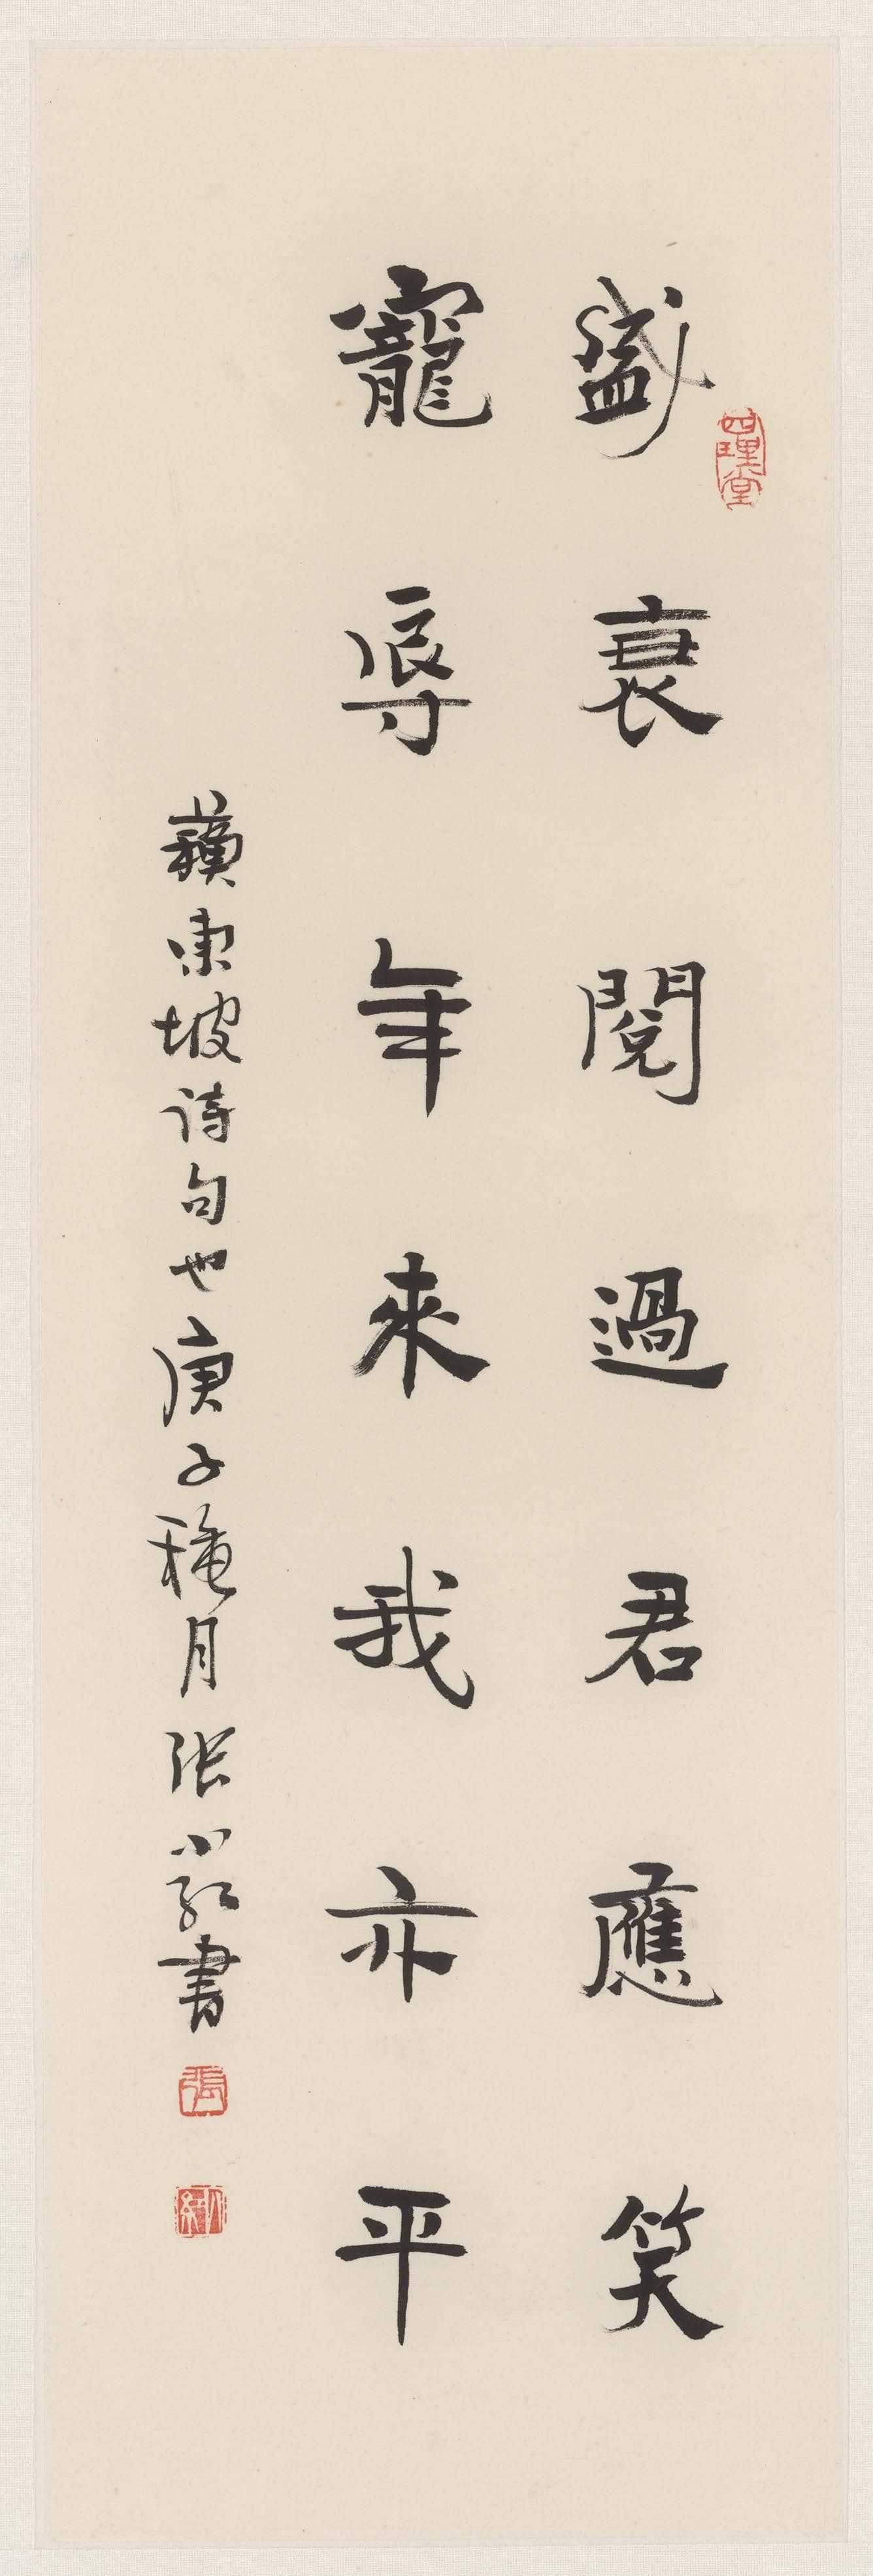 盛衰閱過君應笑
寵辱年來我亦平
蘇東坡詩句也庚子穐月張小紅書
張